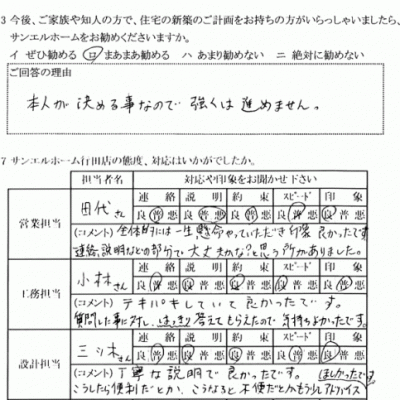 3 今後、ご家族や知人の方で、住宅の新築のご計画をお持ちの方がいらっしゃいましたら、
サンエルホームをお勧めくださいますか。
イ ぜひ勧める ロ まあまあ勧める ハ あまり勧めない ニ 絶対に勧めない
ご回答の理由
本人が決める事なので強くは進めません。
7 サンエルホーム行田店の態度、対応はいかがでしたか。
担当者名 対応や印象をお聞かせ下さい
連絡 説明 約束 スピード 印象
営業担当 田代さん 良 普 悪 良 普 悪 良 普 悪 良 普 悪 良 普 悪
(コメント) 全体的には一生懸命やっていただき印象良かったです
連絡、説明などの部分で大丈夫かな?思う所がありました。
連絡 説明 約束 スピード 印象
工務担当 小林さん 良 普 悪 良 普 悪 良 普 悪 良 普 悪 良 普 悪
(コメント) テキパキしていて良かったです。
質問した事に対し、はっきり答えてもらえたので気持ちよかったです。
連絡 説明 約束 スピード 印象
設計担当 三ツ木さん 良 普 悪 良 普 悪 良 普 悪 良 普 悪 良 普 悪
(コメント) 丁寧な説明で良かったです。 ほしかったです
こうしたら便利だとか、こうなると不便だとかもう少しアドバイス